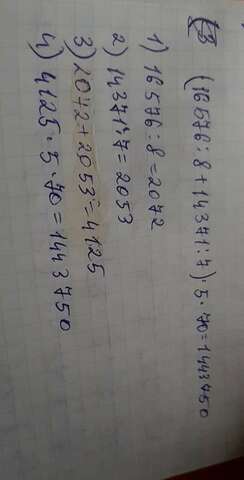 (16 576 : 8 + 14 371 : 7) · 5 · 70 = 1443 750
1) 16 576 : 8 = 2072
2) 14 371 : 7 = 2053
3) 2072 + 2053 = 4125
4) 4125 · 5 · 70 = 1443 750